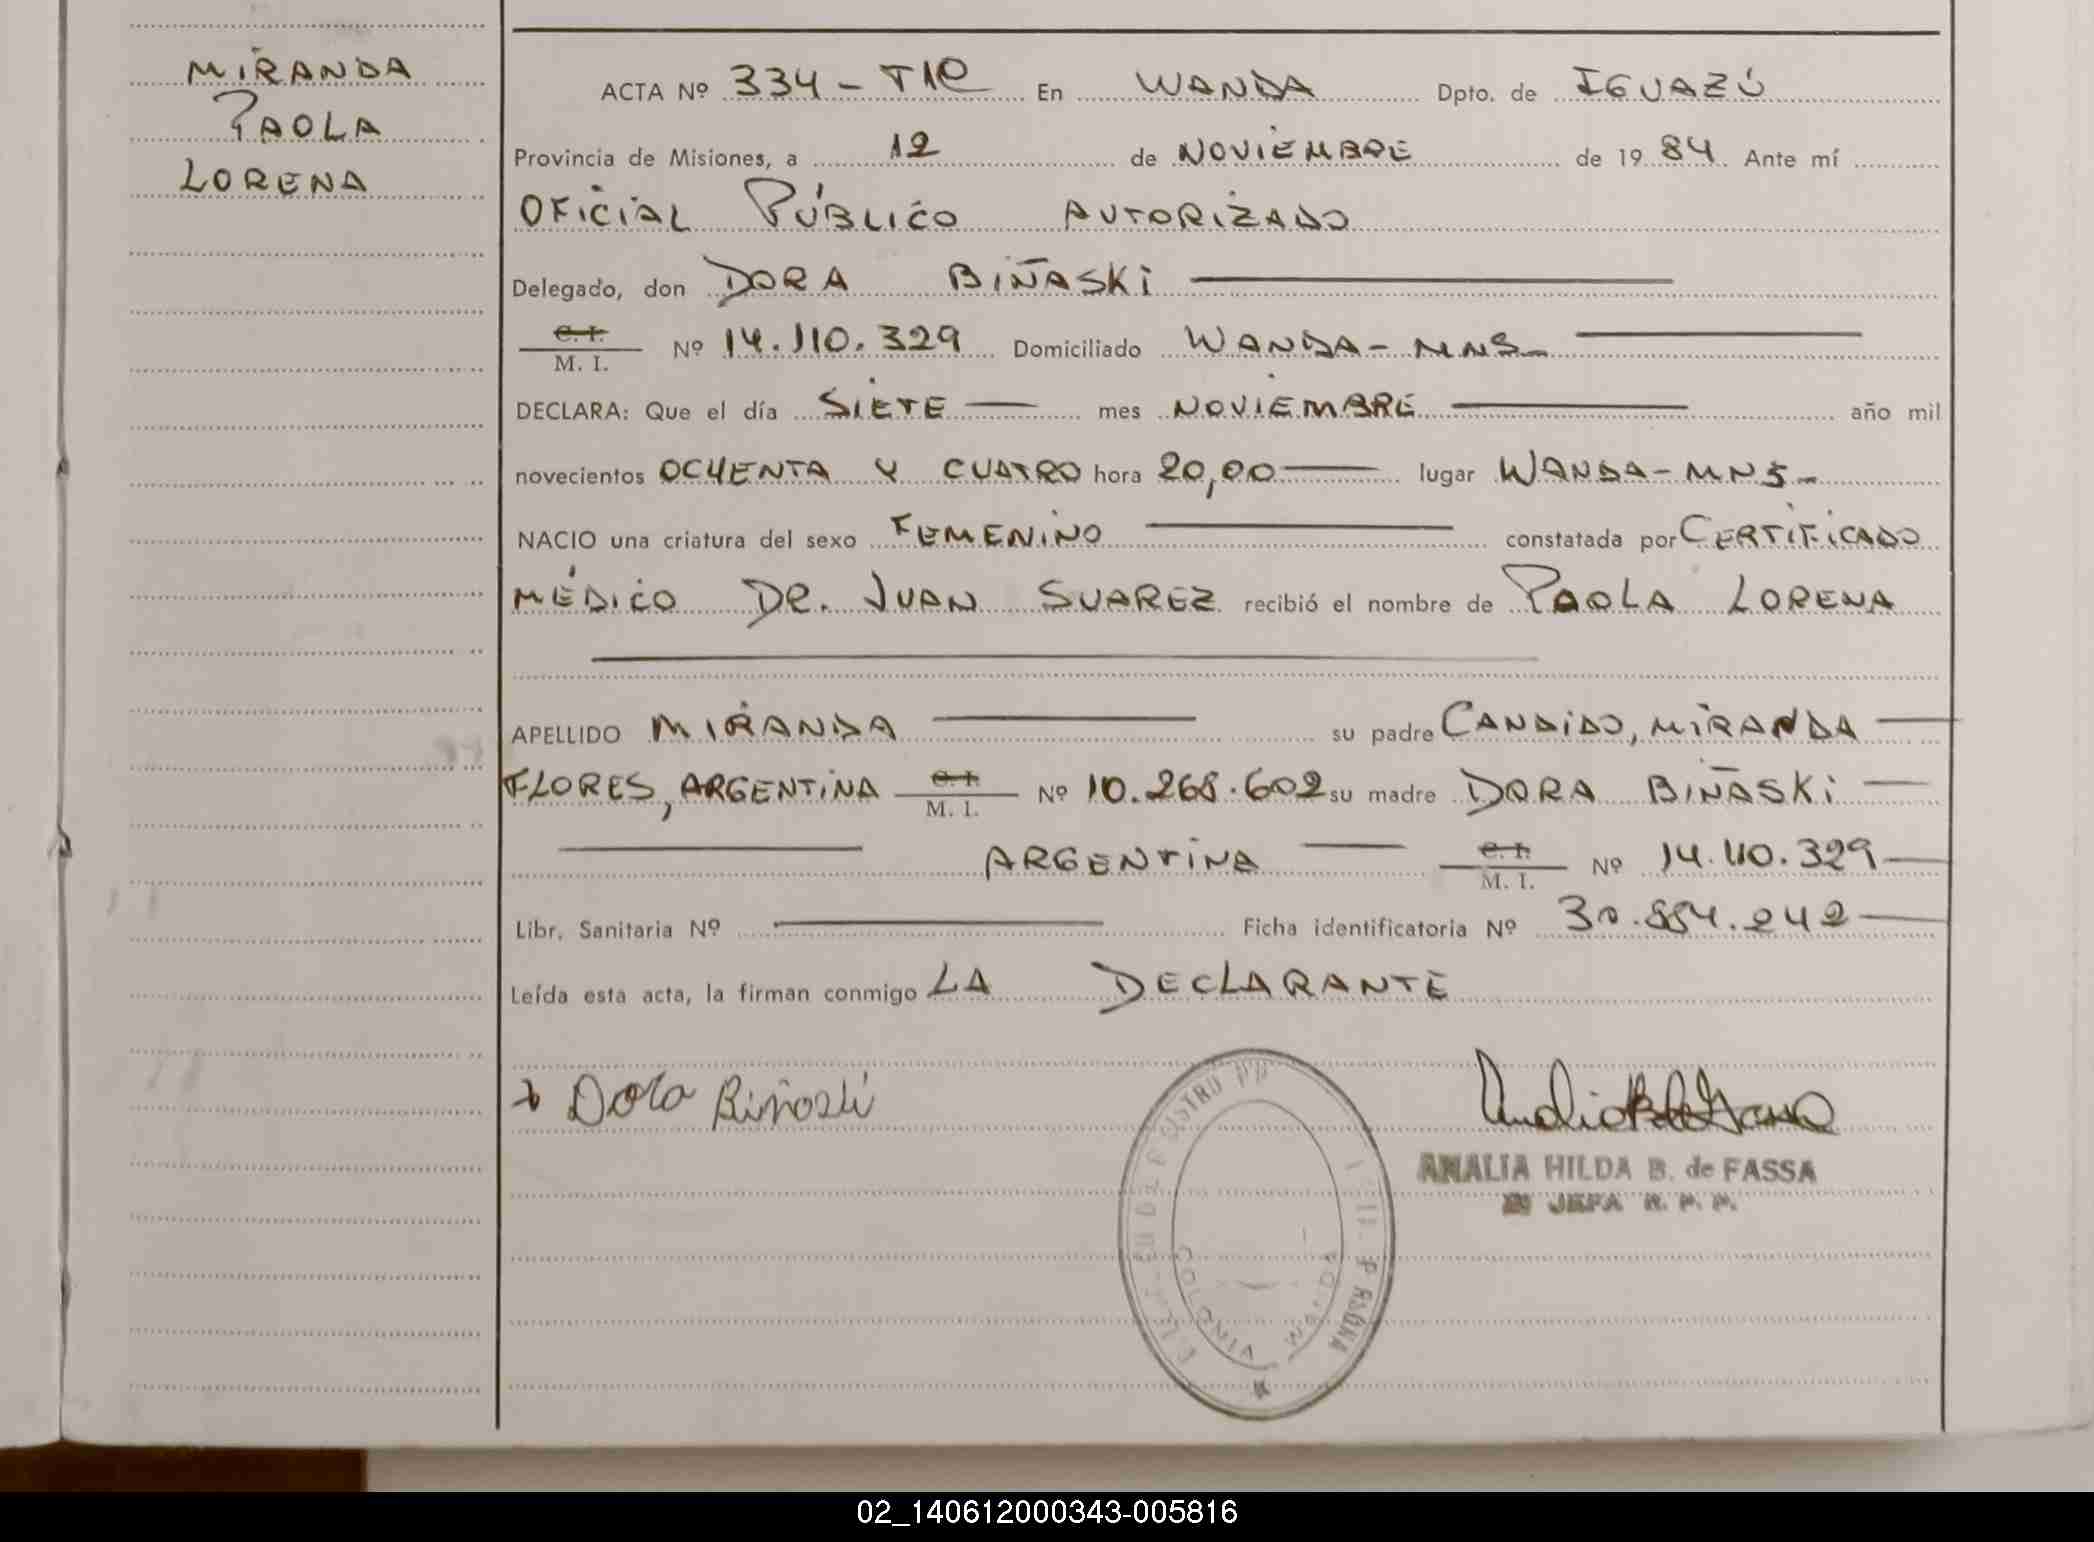 MIRANDA
PAOLA
LORENA
ACTA Nº 334 - T1C En WANDA Dpto. de IGUAZÚ
Provincia de Misiones, a 12 de NOVIEMBRE de 1984 Ante mí
OFICIAL PÚBLICO AUTORIZADO
Delegado, don DORA BIÑASKI
C. I.
M. I. Nº 14.110.329 Domiciliado WANDA - MNS-
DECLARA: Que el día SIETE mes NOVIEMBRE año mil
novecientos OCHENTA Y CUATRO hora 20,00 lugar WANDA - MNS-
NACIO una criatura del sexo FEMENINO constatada por CERTIFICADO
MÉDICO DR. JUAN SUAREZ recibió el nombre de PAOLA LORENA
APELLIDO MIRANDA su padre CANDIDO, MIRANDA
FLORES, ARGENTINA C. I. M. I. Nº 10.268.602 su madre DORA BIÑASKI
ARGENTINA C. I. M. I. Nº 14.110.329
Libr. Sanitaria Nº Ficha identificatoria Nº 30.884.242
Leída esta acta, la firman conmigo LA DECLARANTE
Dora Biñaski
ANALIA HILDA B. de FASSA
JEFA R. P. P.
COLONIA WANDA
02_140612000343-005816